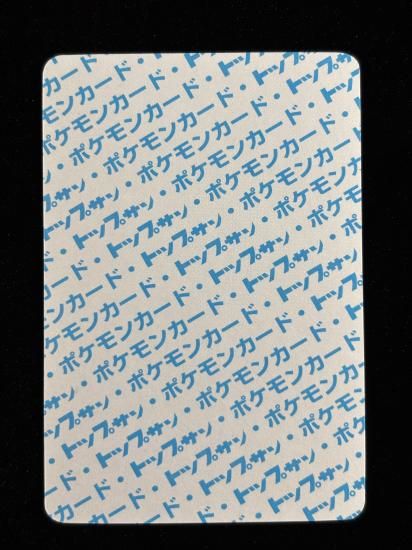 モンカード・
ポケモンカード・トップサン
サン・ポケモンカード・トップサン
トップサン・ポケモンカード・トップ
・トップサン・ポケモンカード・
ード・トップサン・ポケモンカード
カード・トップサン・ポケモンカ
モンカード・トップサン・ポケモ
ケモンカード・トップサン・ポ
・ポケモンカード・トップサン・
サン・ポケモンカード・トップサン
トップサン・ポケモンカード・トップ
・トップサン・ポケモンカード・
ード・トップサン・ポケモンカ
カード・トップサン・ポケモ